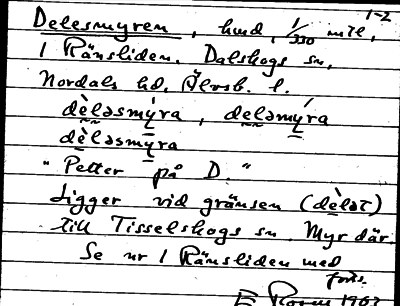 1-2
Delesmyren, hmd, 1/330 mtl,
1 Ränsliden. Dalskogs sn,
Nordals hd. Älvsb. l.
dèləsmýra, deləmýra
dèləsmy̱ra
"Petter på D."
Ligger vid gränsen (dèlət)
till Tisselskogs sn. Myr där.
Se nr 1 Ränsliden med
förts.
1903